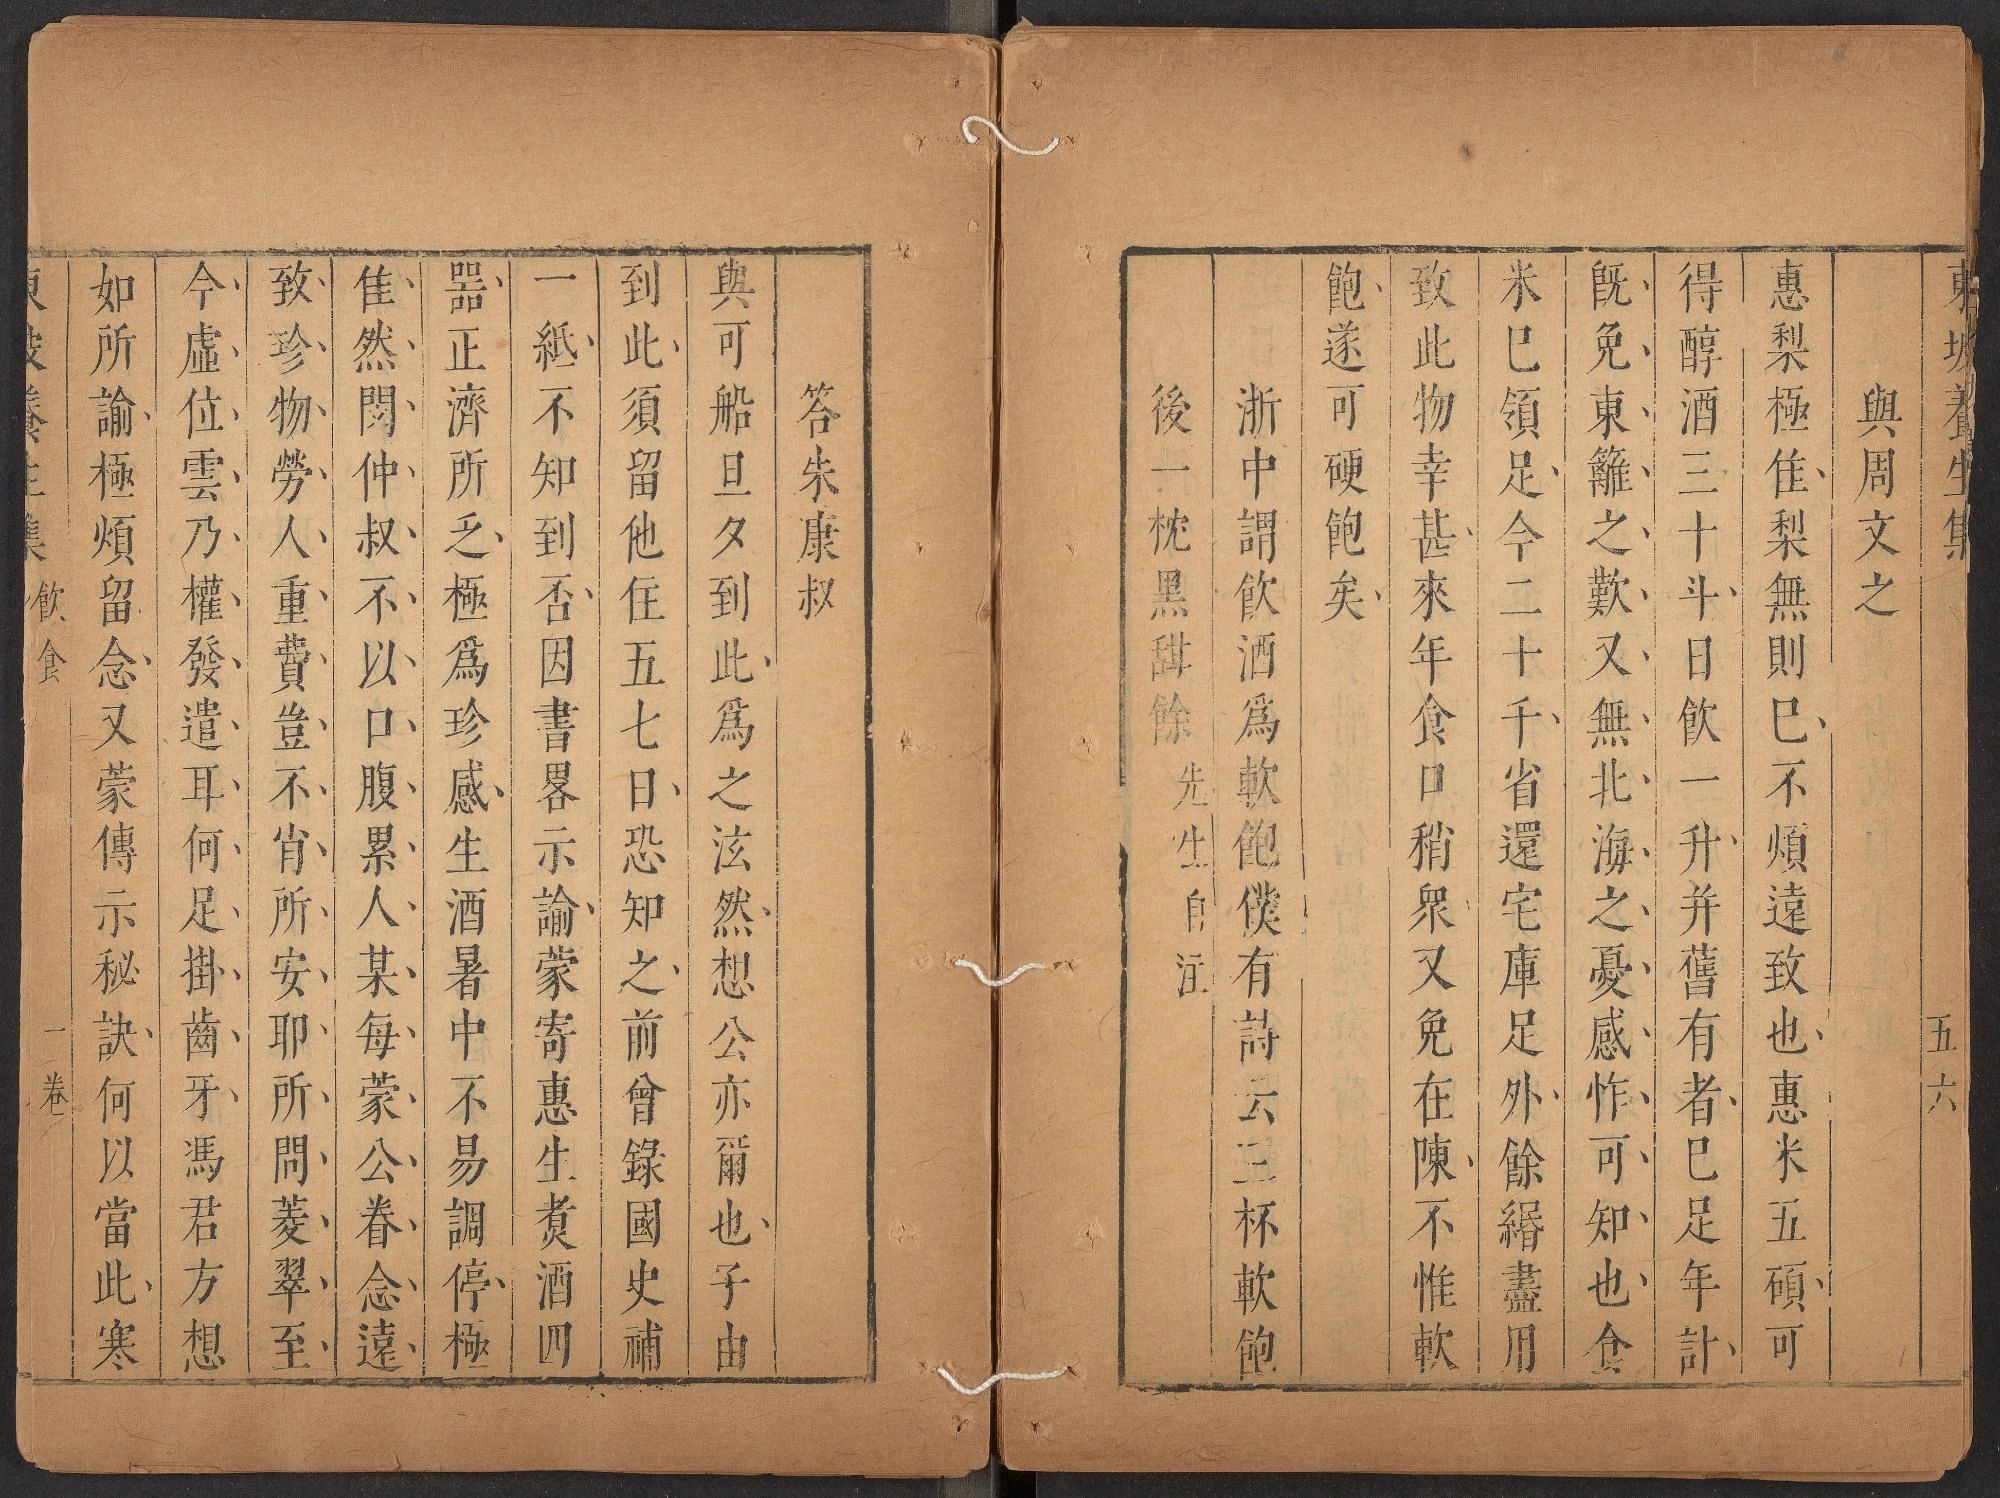 東坡養生集
五六
與周文之
惠梨極佳梨無則已不煩遠致也惠米五碩可
得醇酒三十斗日飲一升并舊有者已足年計
既免東籬之歎又無北海之憂感怍可知也食
米已領足今二十千省還宅庫足外餘緡盡用
致此物幸甚來年食口稍衆又免在陳不惟軟
飽遂可硬飽矣
浙中謂飲酒爲軟飽僕有詩云三杯軟飽
後一枕黑甜餘先生自注
答朱康叔
與可船旦夕到此爲之泫然想公亦爾也子由
到此須留他住五七日恐知之前曾錄國史補
一紙不知到否因書畧示諭蒙寄惠生煑酒四
器正濟所乏極爲珍感生酒暑中不易調停極
佳然閔仲叔不以口腹累人某每蒙公眷念遠
致珍物勞人重費豈不肖所安耶所問菱翠至
今虛位雲乃權發遣耳何足掛齒牙馮君方想
如所諭極煩留念又蒙傳示秘訣何以當此寒
東坡養生集 飲食 一卷